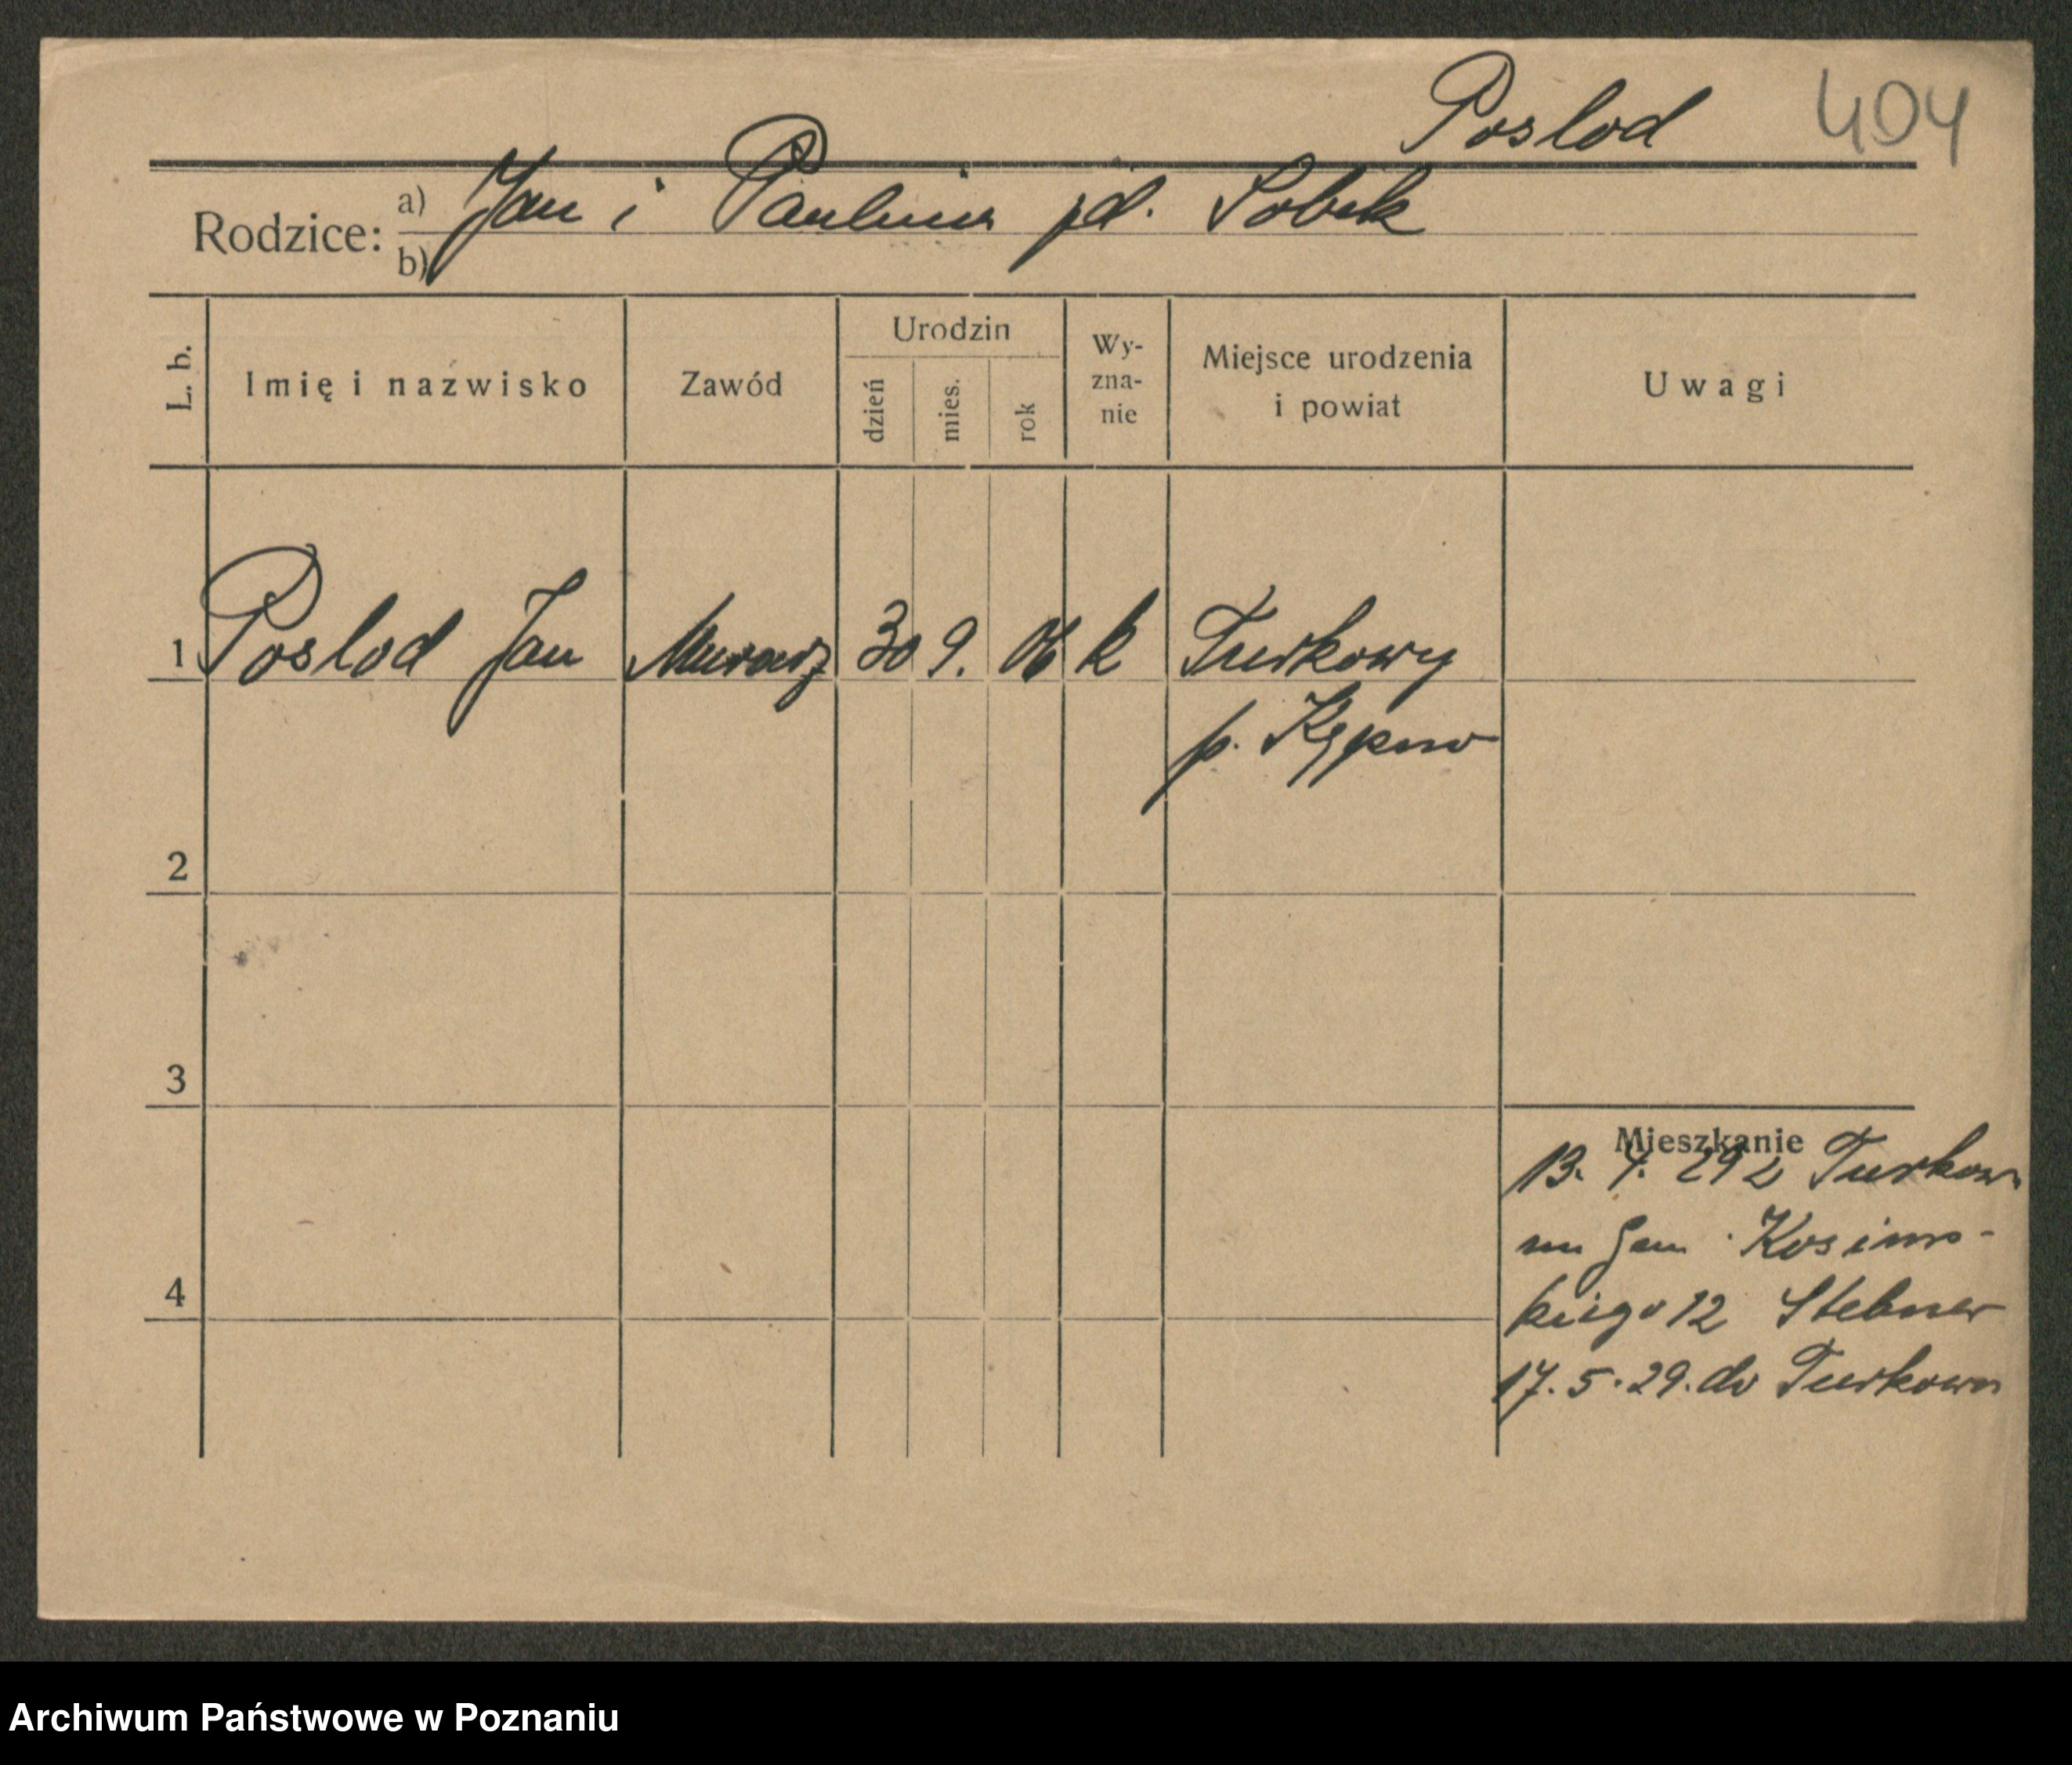 Poslod 404
Rodzice: a) Jan i Paulina pd. Sobek
b)
L. b. Imię i nazwisko Zawód Urodzin dzień mies. rok Wy-zna-nie Miejsce urodzenia i powiat Uwagi
1 Poslod Jan Murarz 30 9. 06 k Turkowy
p. Kępno
2
3
Mieszkanie
13. 4. 29 z Turkow
na Kosins-
4
kiego 12 Stebner
17. 5. 29. do Turkowa
Archiwum Państwowe w Poznaniu